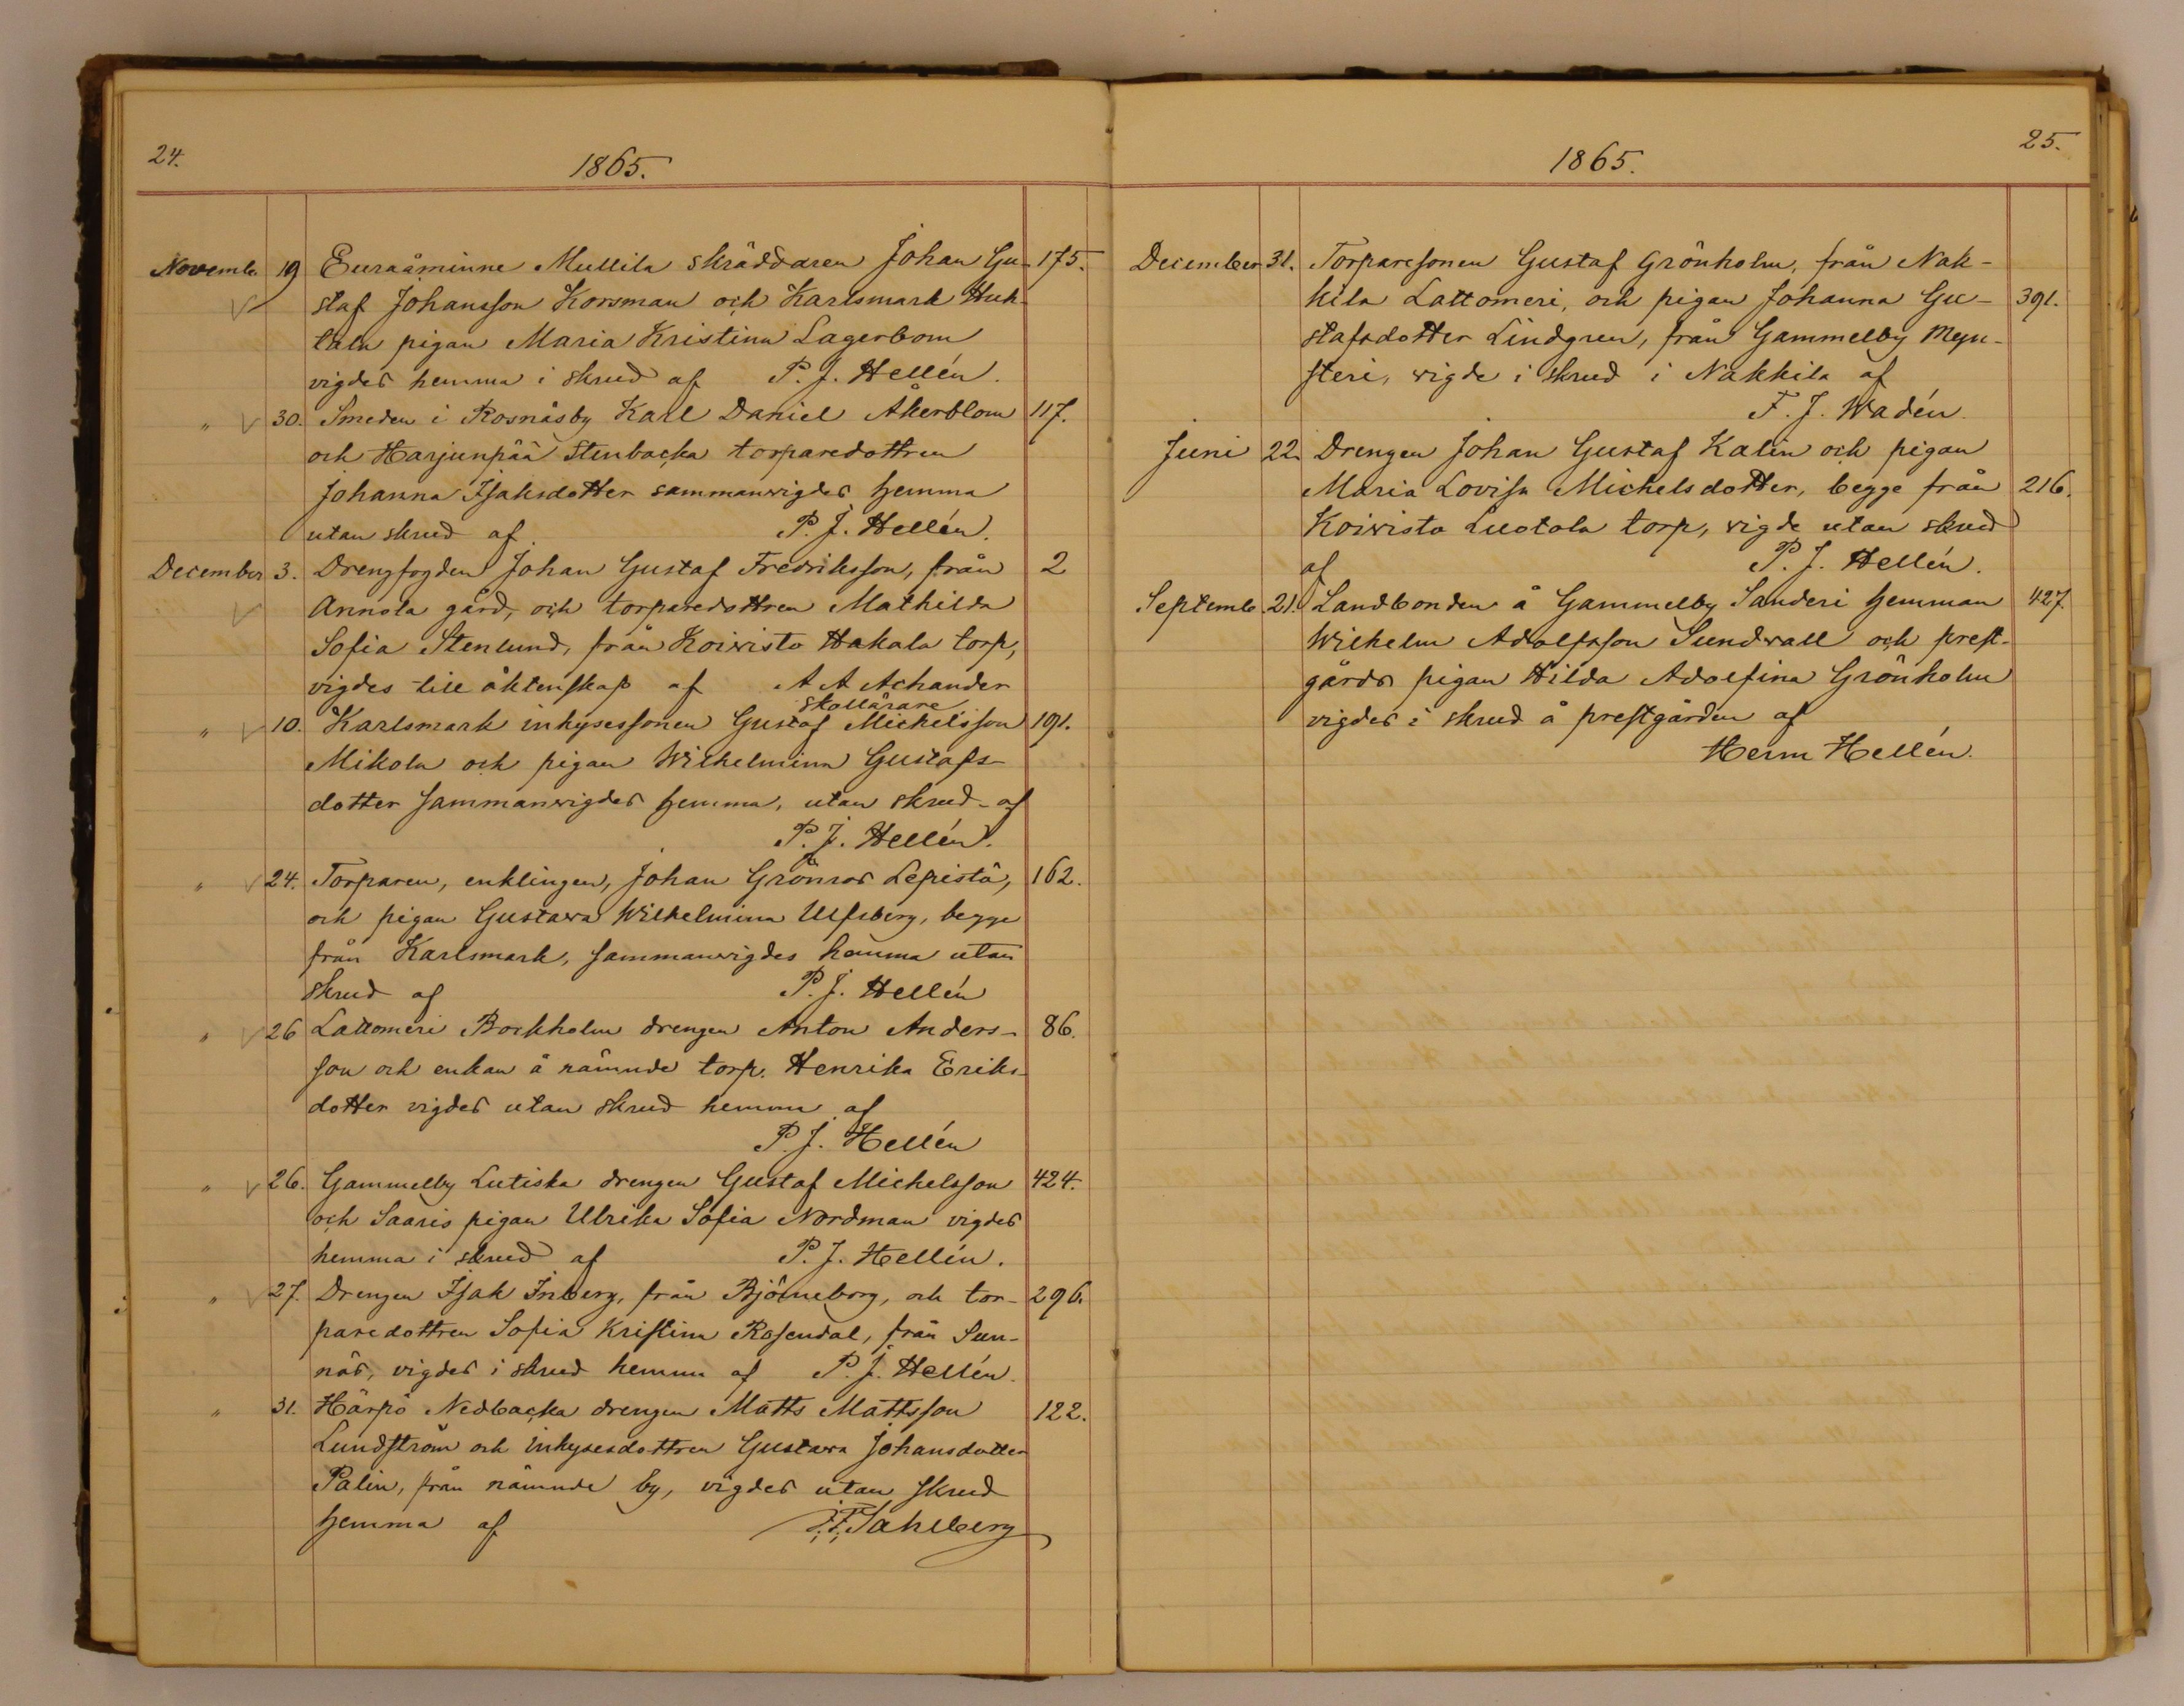 24.
1865.
Novemb. 19 Euraåminne Mullila skräddaren Johan Gu- 175.
staf Johansson Korsman och Karlsmark Huh-
tala pigan Maria Kristina Lagerbom
vigdes hemma i skrud af P. J. Hellén.
" 30. Smeden i Rosnäsby Karl Daniel Åkerblom 117.
och Harjunpää Stenbacka torparedottren
Johanna Isaksdotter sammanvigdes hemma
utan skrud af P. J. Hellén.
December 3. Drengfogden Johan Gustaf Fredriksson, från 2
Annola gård, och torparedottren Mathilda
Sofia Stenlund, från Koivisto Hakala torp,
vigdes till äktenskap af A A Achander
skollärare
" 10. Karlsmark inhysessonen Gustaf Michelsson 191.
Mikola och pigan Wilhelmina Gustafs-
dotter sammanvigdes hemma, utan skrud af
P. J. Hellén.
" 24. Torparen, enklingen, Johan Grönros Lepistö, 162.
och pigan Gustava Wilhelmina Ulfsberg, begge
från Karlsmark, sammanvigdes hemma utan
skrud af P. J. Hellén
" 26 Lattomeri Borkholm drengen Anton Anders- 86.
son och enkan å nämnde torp. Henrika Eriks-
dotter vigdes utan skrud hemma af
P. J. Hellén
" 26. Gammelby Lutiska drengen Gustaf Michelsson 424.
och Saaris pigan Ulrika Sofia Nordman vigdes
hemma i skrud af P. J. Hellén.
" 27. Drengen Isak Inberg, från Björneborg, och tor- 296.
paredottren Sofia Kristina Rosendal, från Sun-
näs, vigdes i skrud hemma af P. J. Hellén.
" 31. Härpö Nedbacka drengen Matts Mattsson 122.
Lundström och inhysesdottren Gustava Johansdotter
Palin, från nämnde by, vigdes utan skrud
hemma af Sahlberg
25.
1865.
December 31. Torparesonen Gustaf Grönholm, från Nak-
kila Lattomeri, och pigan Johanna Gu- 391.
stafsdotter Lindgren, från Gammelby Myn-
steri, vigde i skrud i Nakkila af
F. J. Wadén.
Juni 22. Drengen Johan Gustaf Kalin och pigan
Maria Lovisa Michelsdotter, begge från 216.
Koivisto Luotola torp, vigde utan skrud
af P. J. Hellén.
Septemb. 21. Landbonden å Gammelby Sanderi hemman 427.
Wilhelm Adolfsson Sundvall och prest-
gårds pigan Hilda Adolfina Grönholm
vigdes i skrud å prestgården af
Herm Hellén.